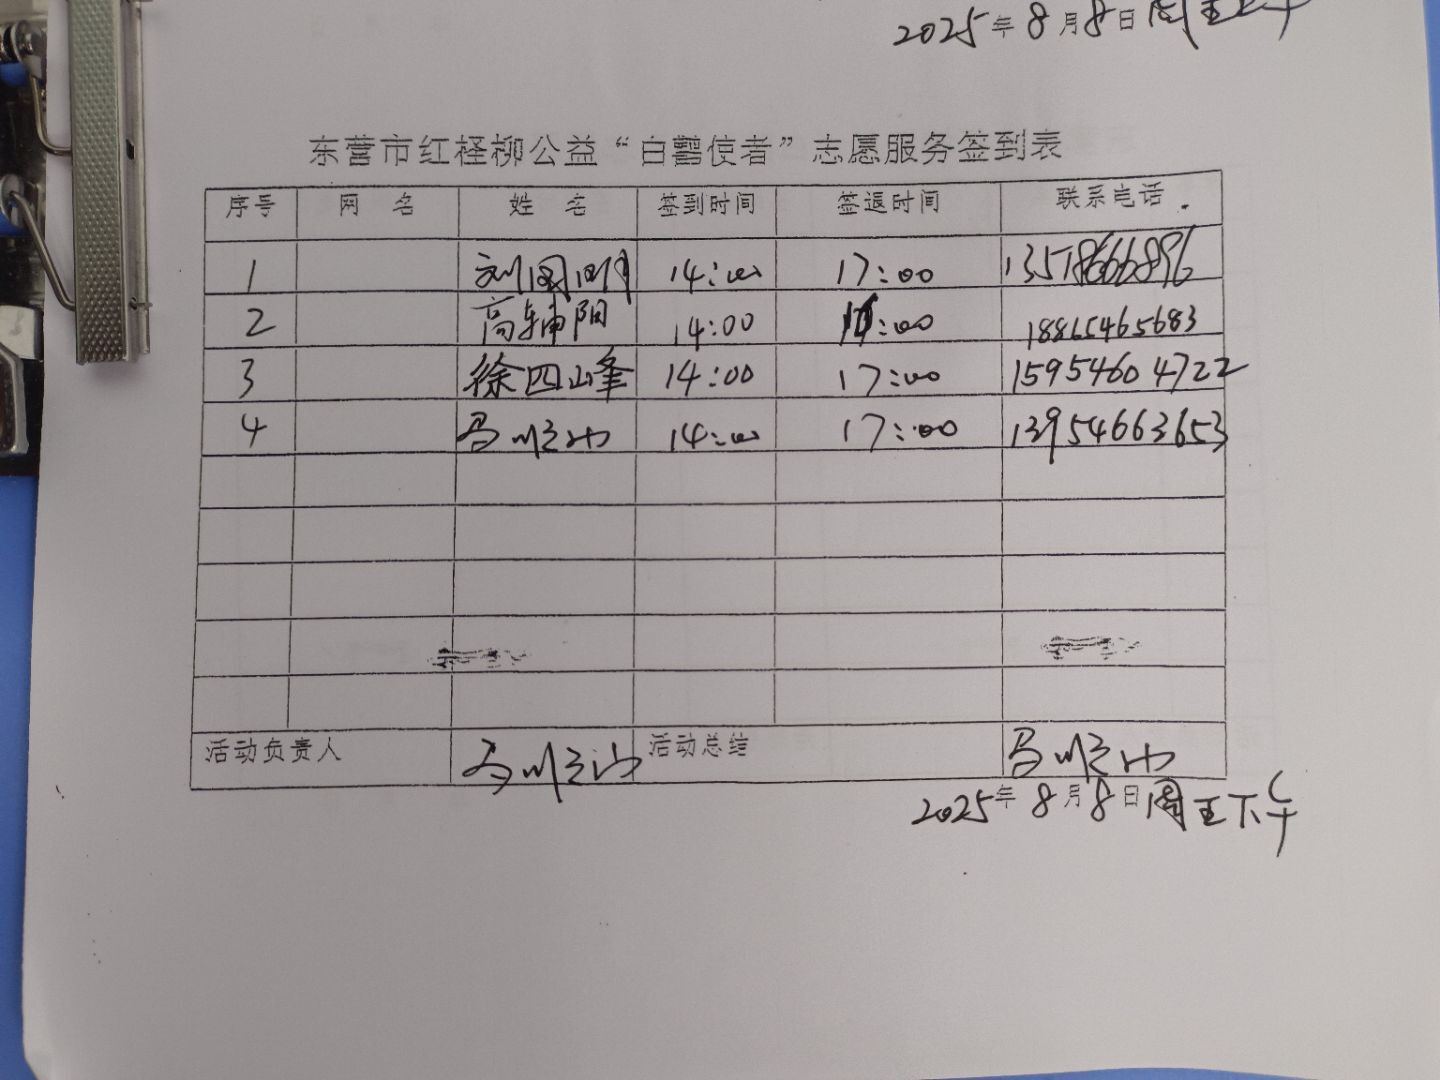 2025年8月8日周五上午
东营市红柽柳公益“白鹳使者”志愿服务签到表
序号 网 名 姓 名 签到时间 签退时间 联系电话
1 刘国明 14:00 17:00 13578666896
2 高辅阳 14:00 17:00 18865465683
3 徐四峰 14:00 17:00 15954604722
4 马顺 14:00 17:00 13954663653
活动负责人 马顺 活动总结 马顺
2025年8月8日周五下午